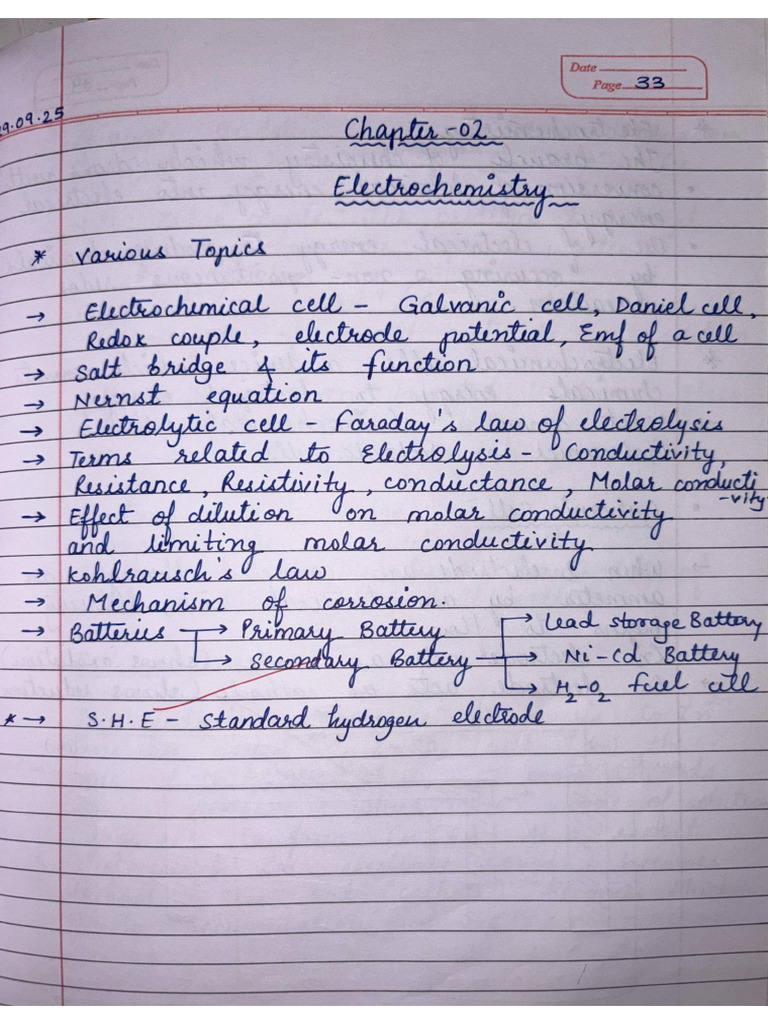 Date
Page 33
9.09.25
Chapter -02
Electrochemistry
* Various Topics
→ Electrochemical cell - Galvanic cell, Daniel cell,
Redox couple, electrode potential, Emf of a cell
→ Salt bridge & its function
→ Nernst equation
→ Electrolytic cell - Faraday's law of electrolysis
→ Terms related to Electrolysis - Conductivity,
Resistance, Resistivity, conductance, Molar conducti
-vity
→ Effect of dilution on molar conductivity
and limiting molar conductivity
→ Kohlrausch's law
→ Mechanism of corrosion.
→ Batteries → Primary Battery → Lead storage Battery
→ Secondary Battery → Ni-Cd Battery
→ H2-O2 fuel cell
* → S.H.E - standard hydrogen electrode